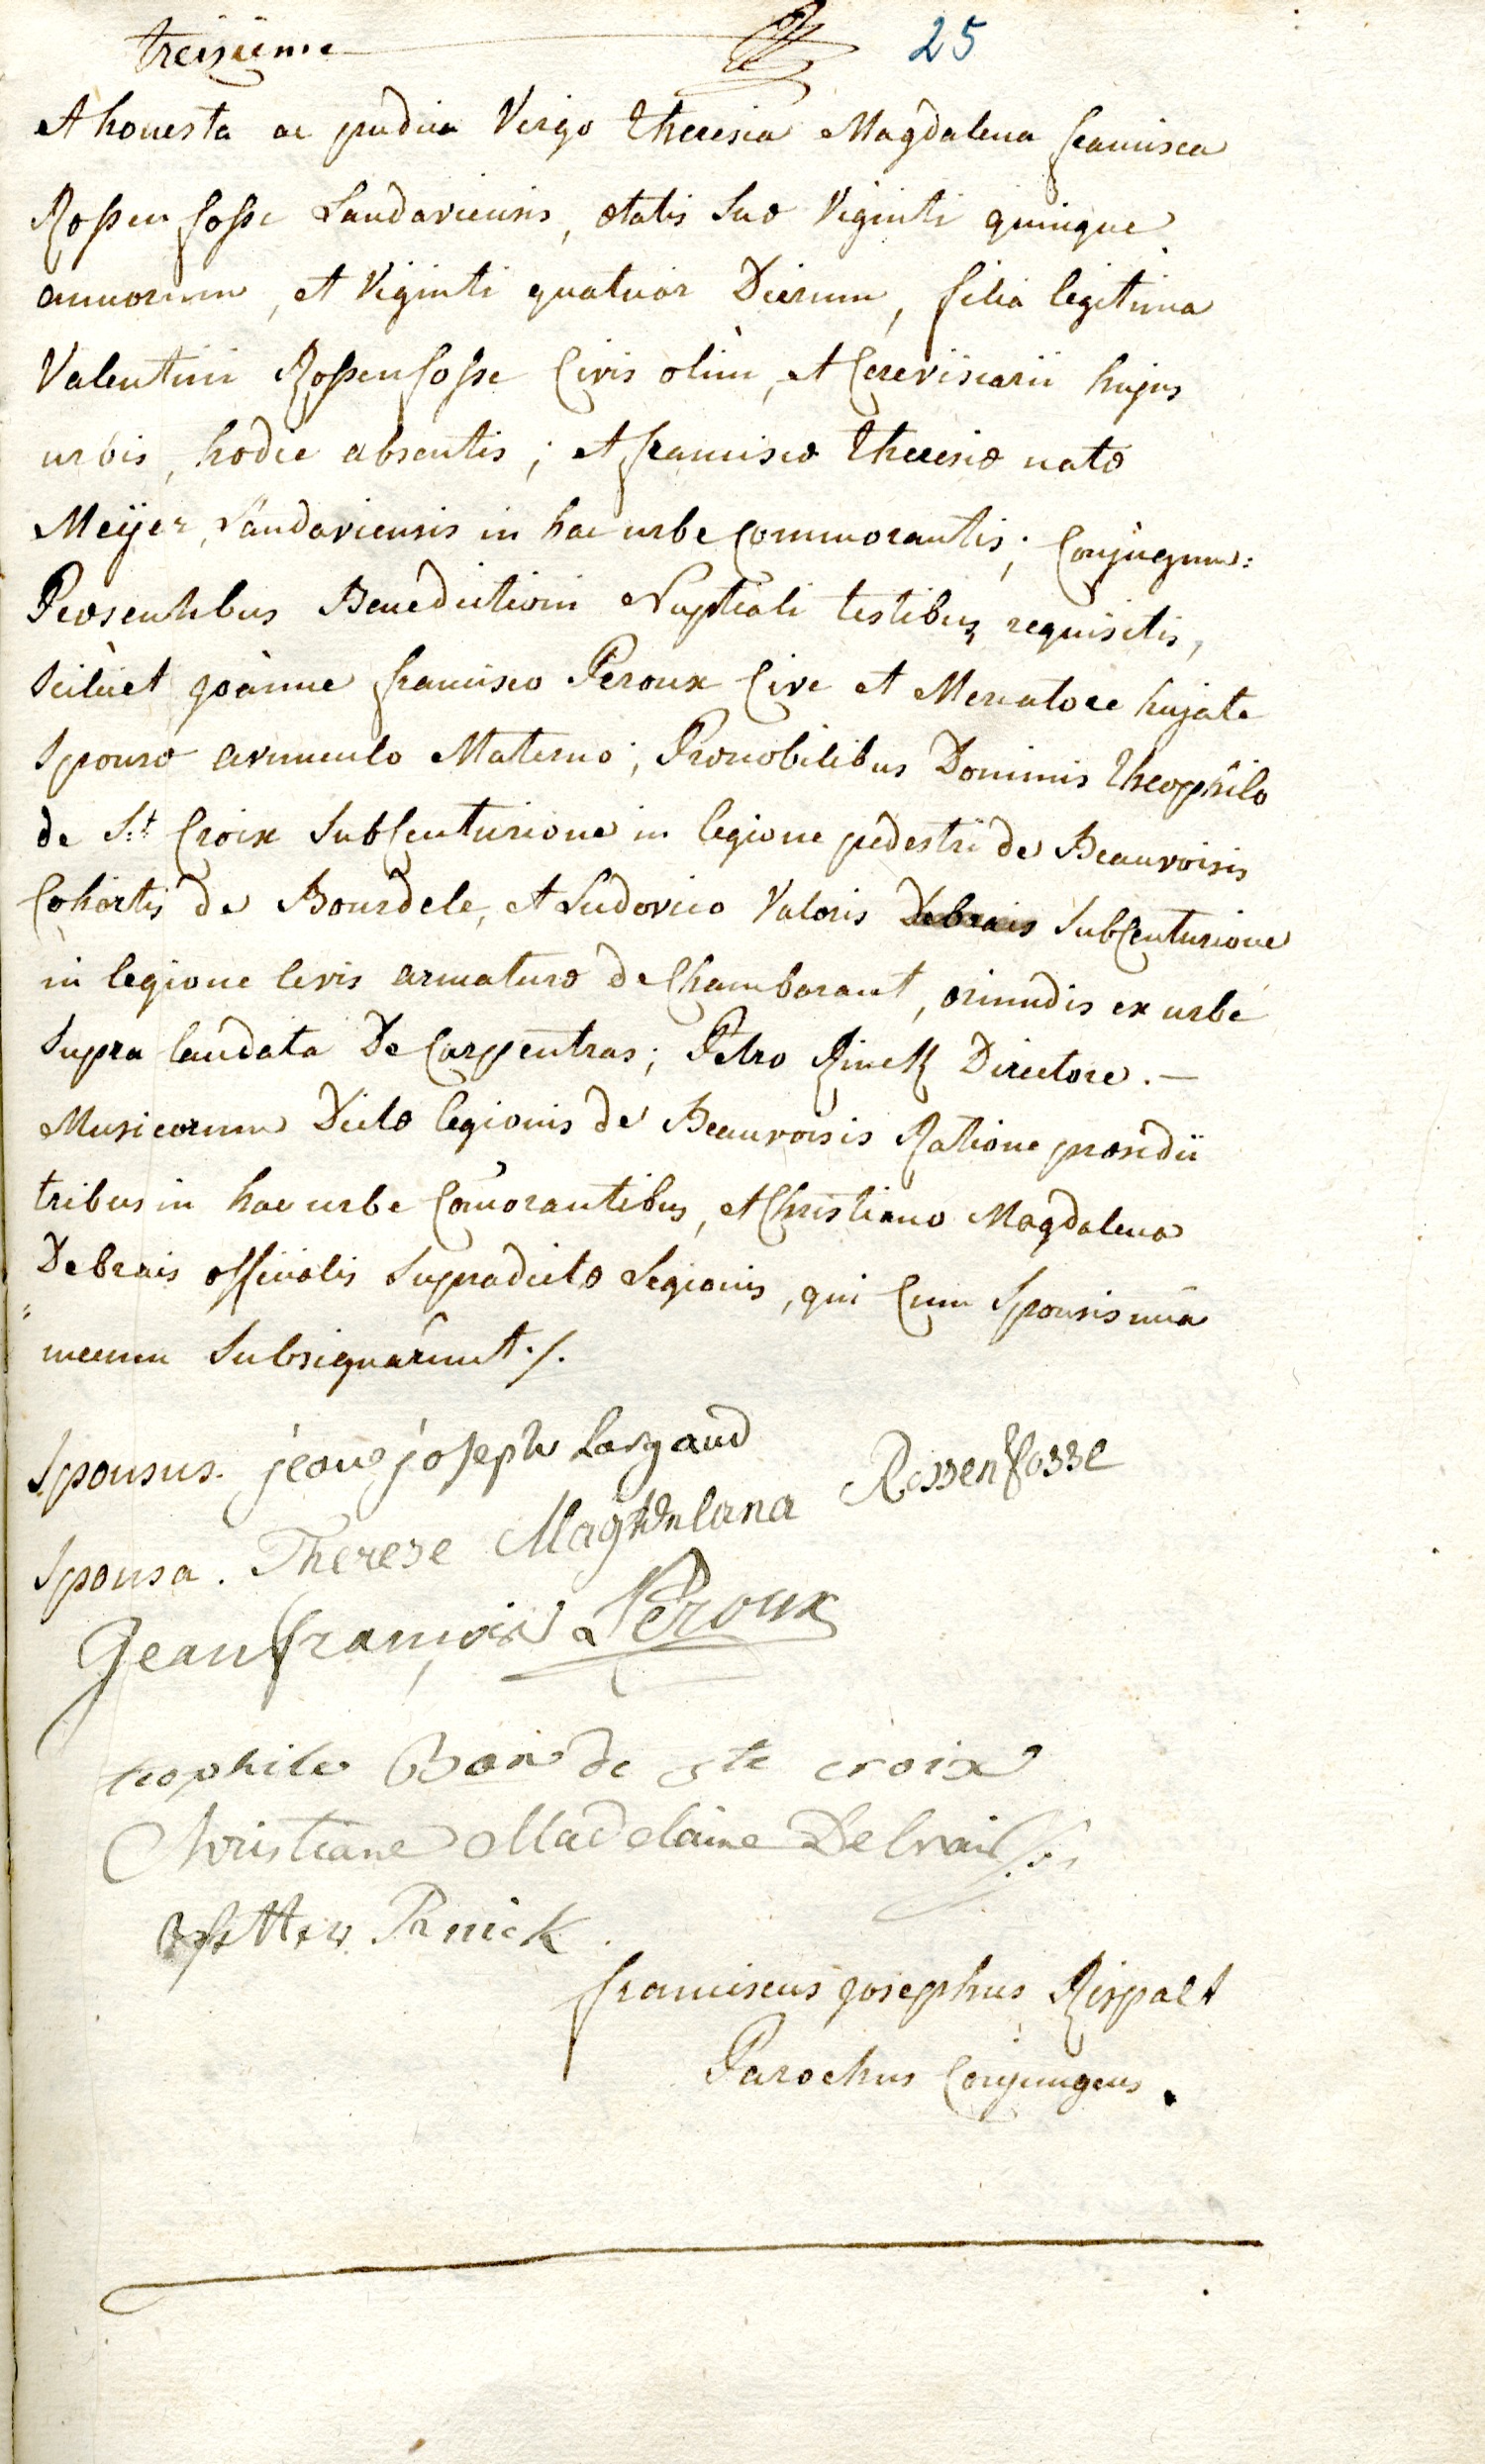 treizieme 25
et honesta ac pudica Virgo Theresia Magdalena francisca
Rossenfosse Landaviensis, ætatis suæ Viginti quinque
annorum, et Viginti quatuor Dierum, filia legitima
Valentini Rossenfosse Civis olim, et Cerevisiarii hujus
urbis, hodie absentis; et franciscæ Theresiæ natæ
Meÿer, Landaviensis in hac urbe Commorantis; Conjugum:
Præsentibus Benedictioni Nuptiali testibus requisitis,
scilicet Joanne francisco Peroux Cive et Mercatore hujate
Sponso avunculo Materno; Prænobilibus Dominis Theophilo
de St. Croix SubCenturione in legione pedestri de Beauvoisis
Cohortis de Bourdele, et Ludovico Valoris Debrais SubCenturione
in legione levis armaturæ de Chamborant, oriundis ex urbe
Supra laudata De Carpentras; Petro Rinck Directore. —
Musicorum Dictæ legionis de Beauvoisis Ratione præsidii
tribus in hac urbe Com̄orantibus, et Christiano Magdalena
Debrais officialis Supradictæ Legionis, qui Cum Sponsis unà
mecum Subsignârunt ./.
Sponsus. jean joseph Largaud
Sponsa. Therese Magdelana Rossenfosse
Jean françois Peroux
teophile de ste croix
Christiane Madelaine Debrais
Rinick
franciscus Josephus Rispalt
Parochus Conjungens.